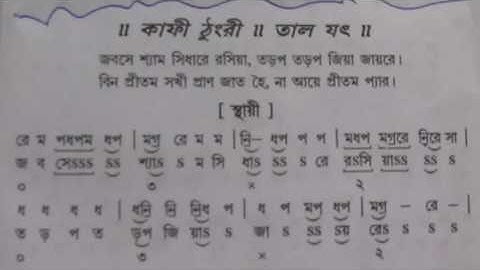 ॥ কাফী ঠুংরী ॥ তাল যৎ ॥
জবসে শ্যাম সিধারে রসিয়া, তড়প তড়প জিয়া জায়রে।
বিন প্রীতম সখী প্রাণ জাত হৈ, না আয়ে প্রীতম প্যার।
[ স্থায়ী ]
রে ম পধপম ধপ | মগু রে ম ম | নি– ধপ প প | মধপ মগুরে নিরে সা |
জ ব সেSSS SS | শ্যাS S ম সি | ধাS SS S রে | রSসি য়াSS SS S
০ ৩ × ২
ধ ধ ধ ধ | ধনি নি নিধ প | ধ প মপ ধপ | মগু – রে – |
ত ড় প ত | ড়প জি য়াS S | জা S SS Sয় | রেS S S S
০ ৩ × ২